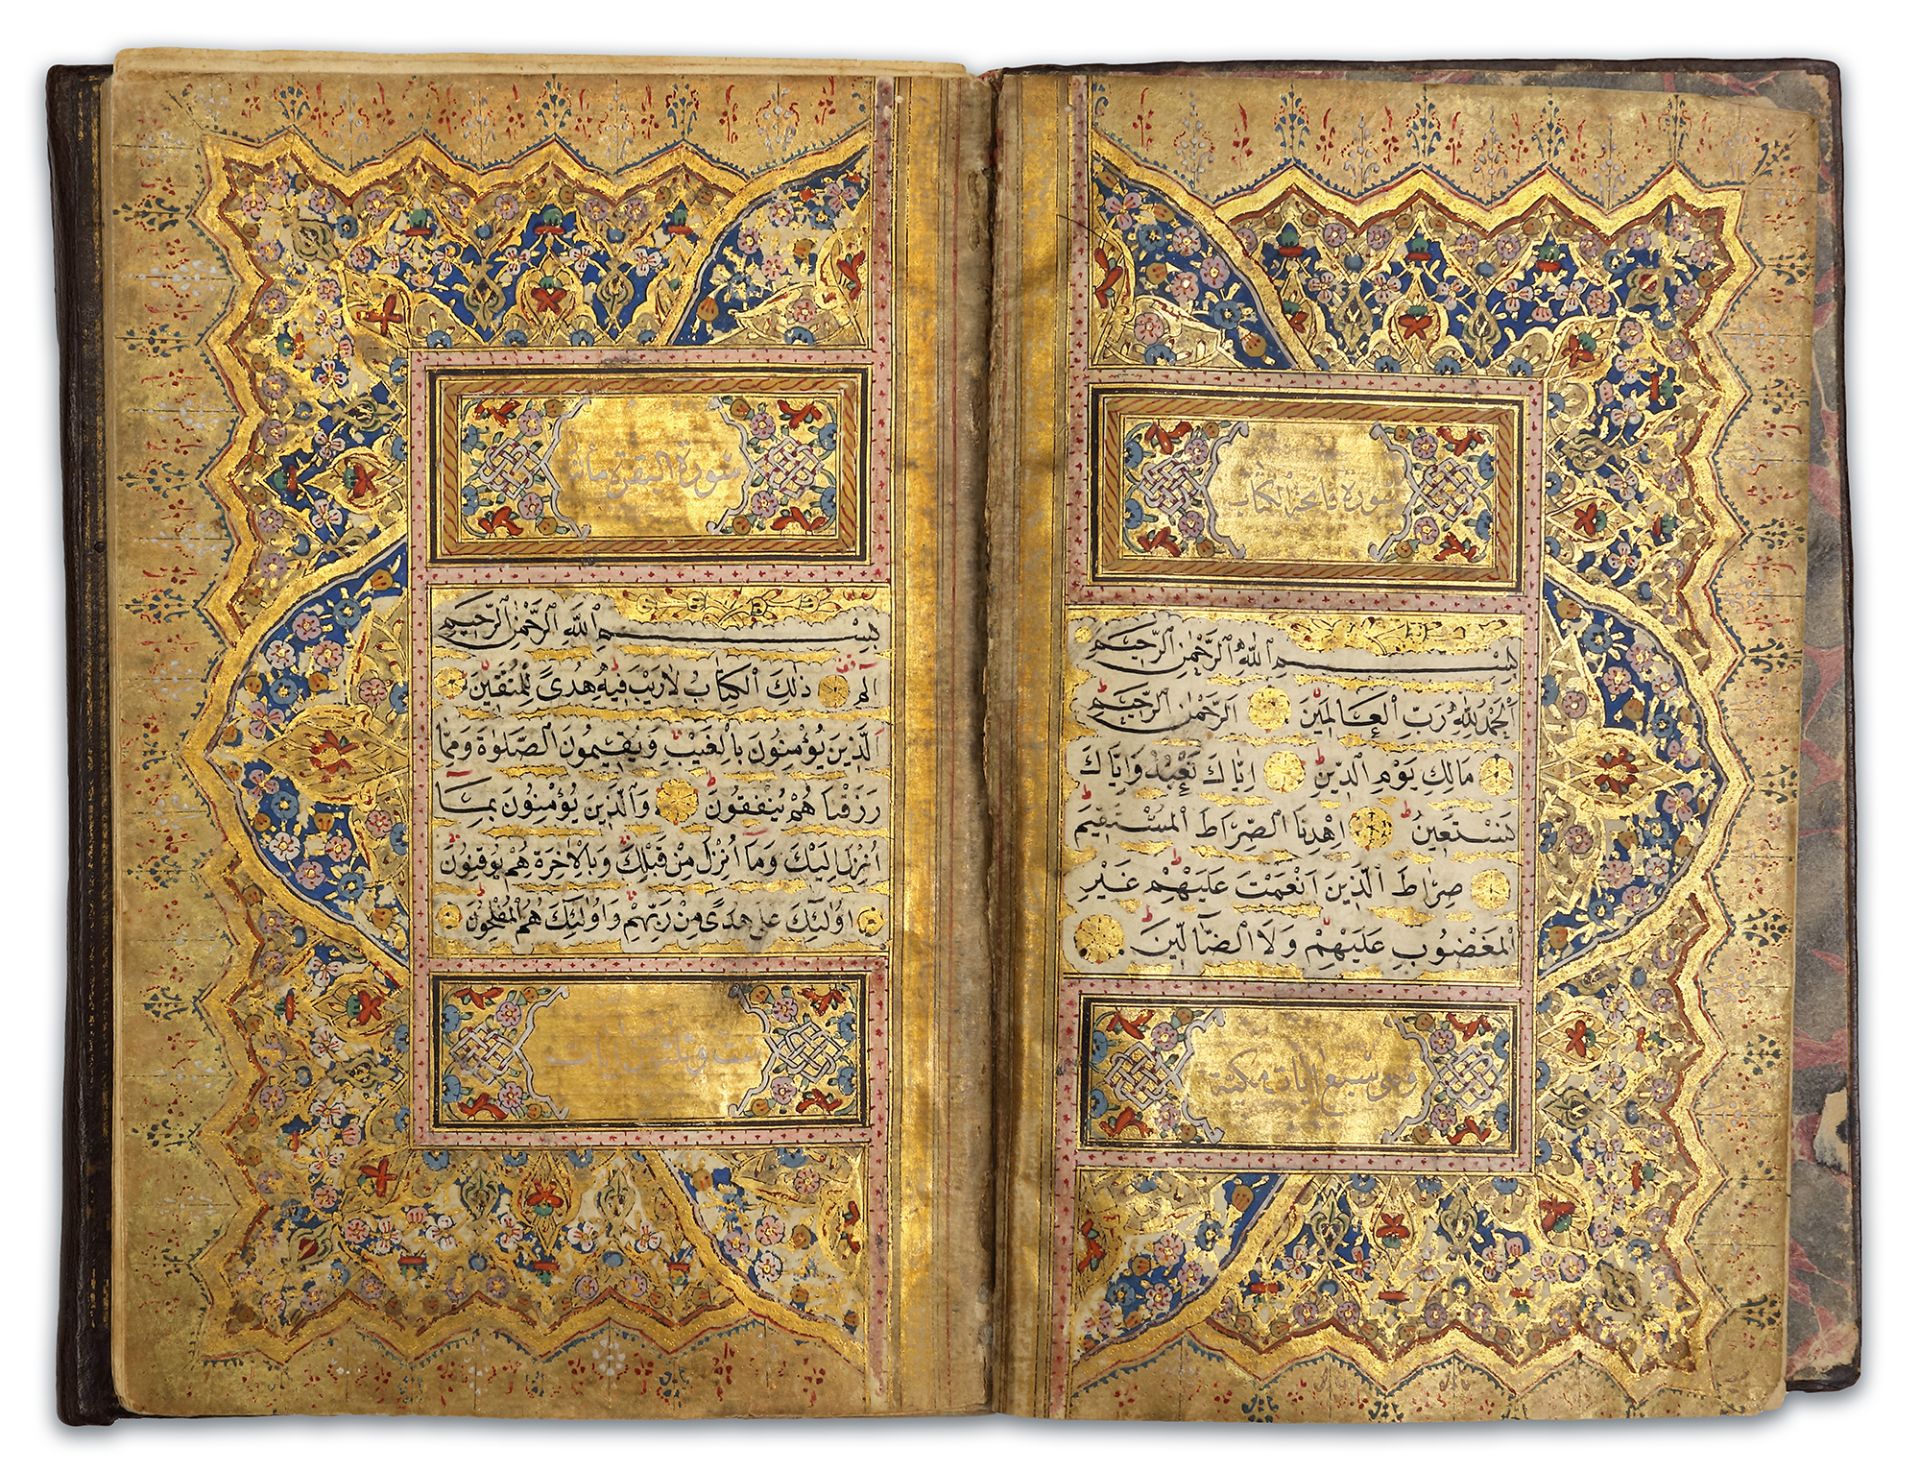 سورة فاتحة الكتاب
بِسْمِ اللّٰهِ الرَّحْمٰنِ الرَّحِيمِ
اَلْحَمْدُ لِلّٰهِ رَبِّ الْعَالَمِينَ الرَّحْمٰنِ الرَّحِيمِ
مَالِكِ يَوْمِ الدِّينِ اِيَّاكَ نَعْبُدُ وَاِيَّاكَ
نَسْتَعِينُ اِهْدِنَا الصِّرَاطَ الْمُسْتَقِيمَ
صِرَاطَ الَّذِينَ اَنْعَمْتَ عَلَيْهِمْ غَيْرِ
الْمَغْضُوبِ عَلَيْهِمْ وَلَا الضَّالِّينَ
وهي سبع ايات مكية
سورة البقرة
بِسْمِ اللّٰهِ الرَّحْمٰنِ الرَّحِيمِ
الم ذٰلِكَ الْكِتَابُ لَا رَيْبَ فِيهِ هُدًى لِلْمُتَّقِينَ
الَّذِينَ يُؤْمِنُونَ بِالْغَيْبِ وَيُقِيمُونَ الصَّلٰوةَ وَمِمَّا
رَزَقْنَاهُمْ يُنْفِقُونَ وَالَّذِينَ يُؤْمِنُونَ بِمَا
اُنْزِلَ اِلَيْكَ وَمَا اُنْزِلَ مِنْ قَبْلِكَ وَبِالْاٰخِرَةِ هُمْ يُوقِنُونَ
اُولٰئِكَ عَلٰى هُدًى مِنْ رَبِّهِمْ وَاُولٰئِكَ هُمُ الْمُفْلِحُونَ
ايات